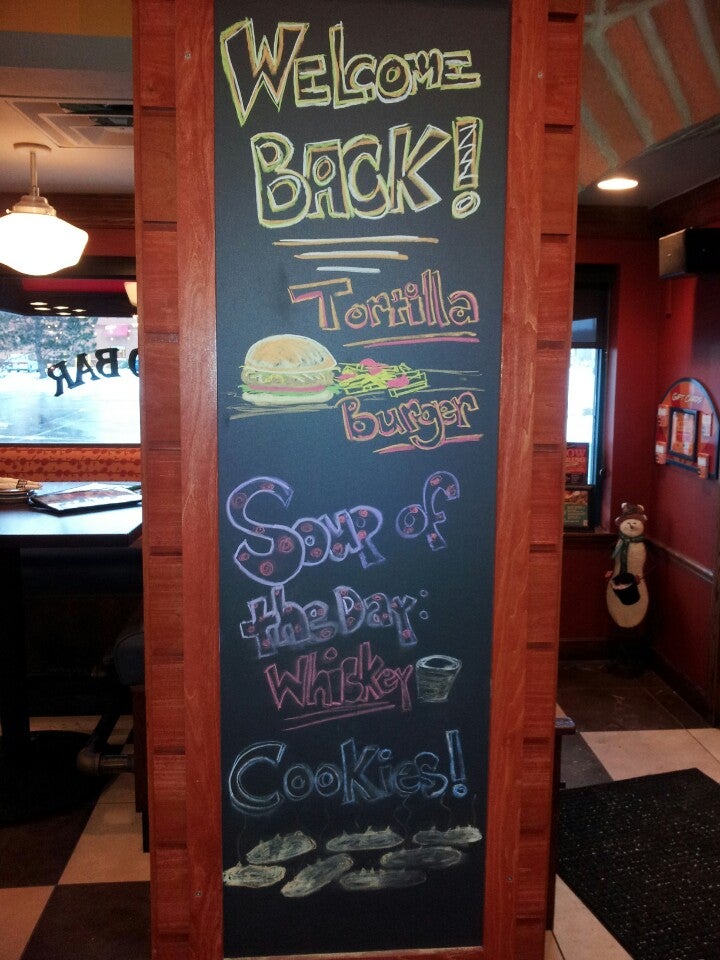 Welcome
Back!
Tortilla
Burger
Soup of
the Day:
Whiskey
Cookies!
BAR
Gift Cards